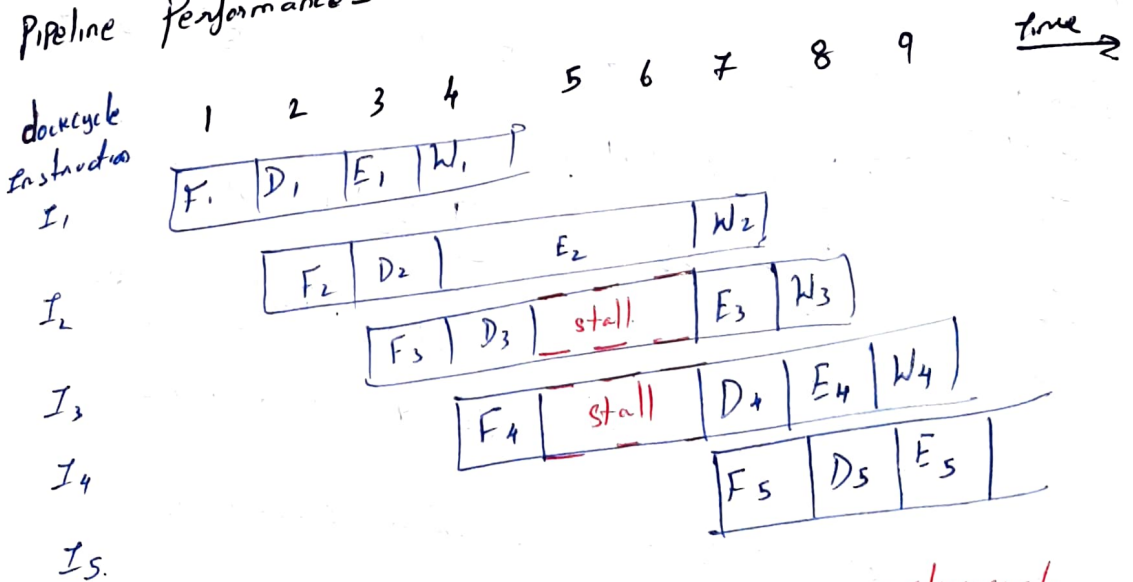 Pipeline Performance
Time
clockcycle 1 2 3 4 5 6 7 8 9
Instruction
I1 F1 D1 E1 W1
I2 F2 D2 E2 W2
I3 F3 D3 stall E3 W3
I4 F4 stall D4 E4 W4
I5. F5 D5 E5